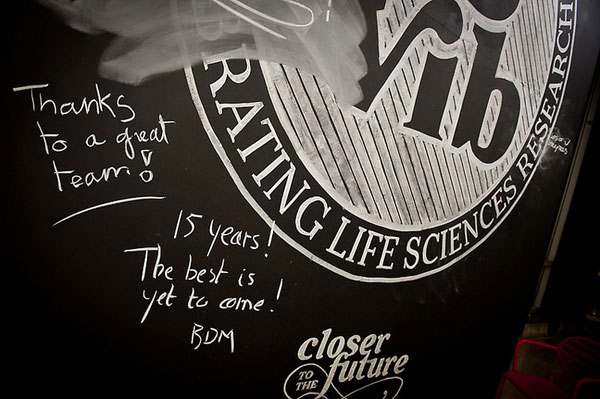 Thanks
to a great
team!
15 years!
The best is
yet to come!
BDM
vib
RATING LIFE SCIENCES RESEARCH
closer
TO THE future